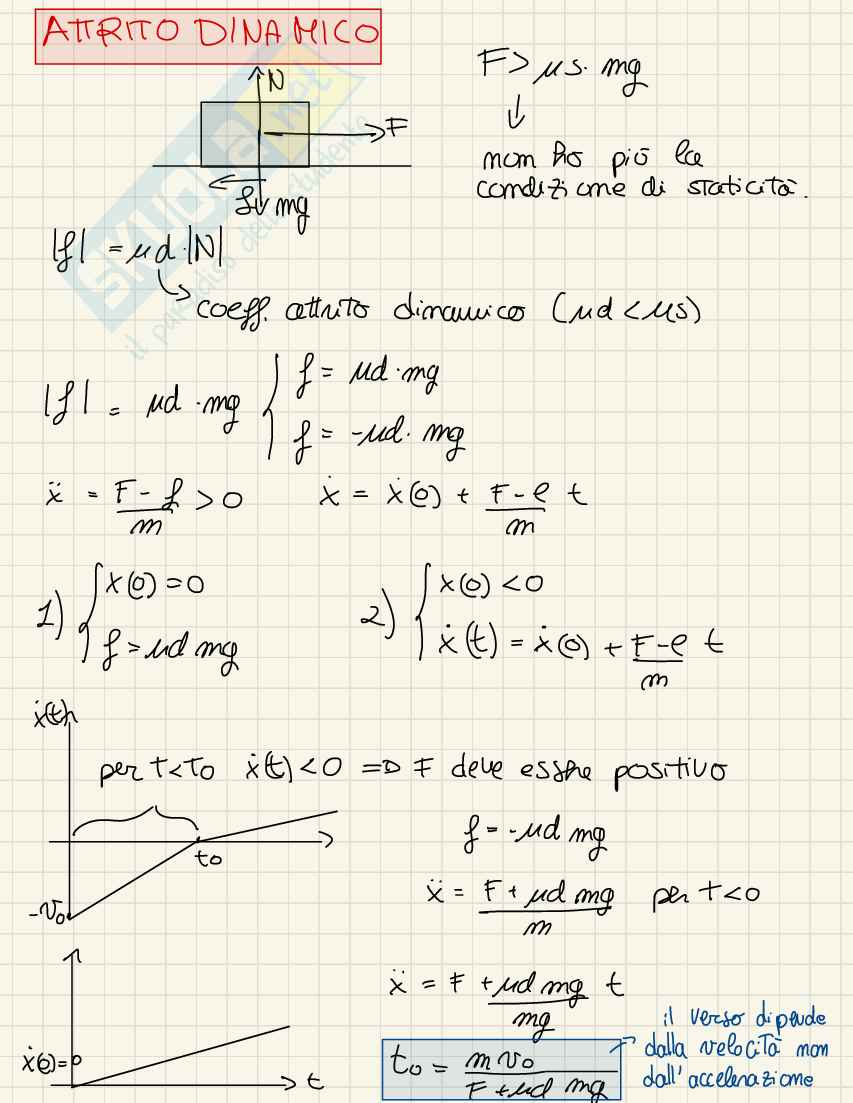 ATTRITO DINAMICO
N
F
f
mg
F > μs · mg
↓
non ho più la
condizione di staticità.
|f| = μd · |N|
coeff. attrito dinamico (μd < μs)
|f| = μd · mg { f = μd · mg
f = -μd · mg
ẍ = F - f / m > 0   ẋ = ẋ(0) + F - f / m t
1) { x(0) = 0
f = μd mg
2) { x(0) < 0
ẋ(t) = ẋ(0) + F - f / m t
ẋ(t)
per t < t0   ẋ(t) < 0 => F deve essere positivo
t0
-v0
f = -μd mg
ẍ = F + μd mg / m   per t < 0
ẍ = F + μd mg / mg t
t0 = m v0 / F + μd mg
il verso dipende
dalla velocità non
dall'accelerazione
ẋ(0) = 0
t
SKUOLA.net
il paradiso dello studente